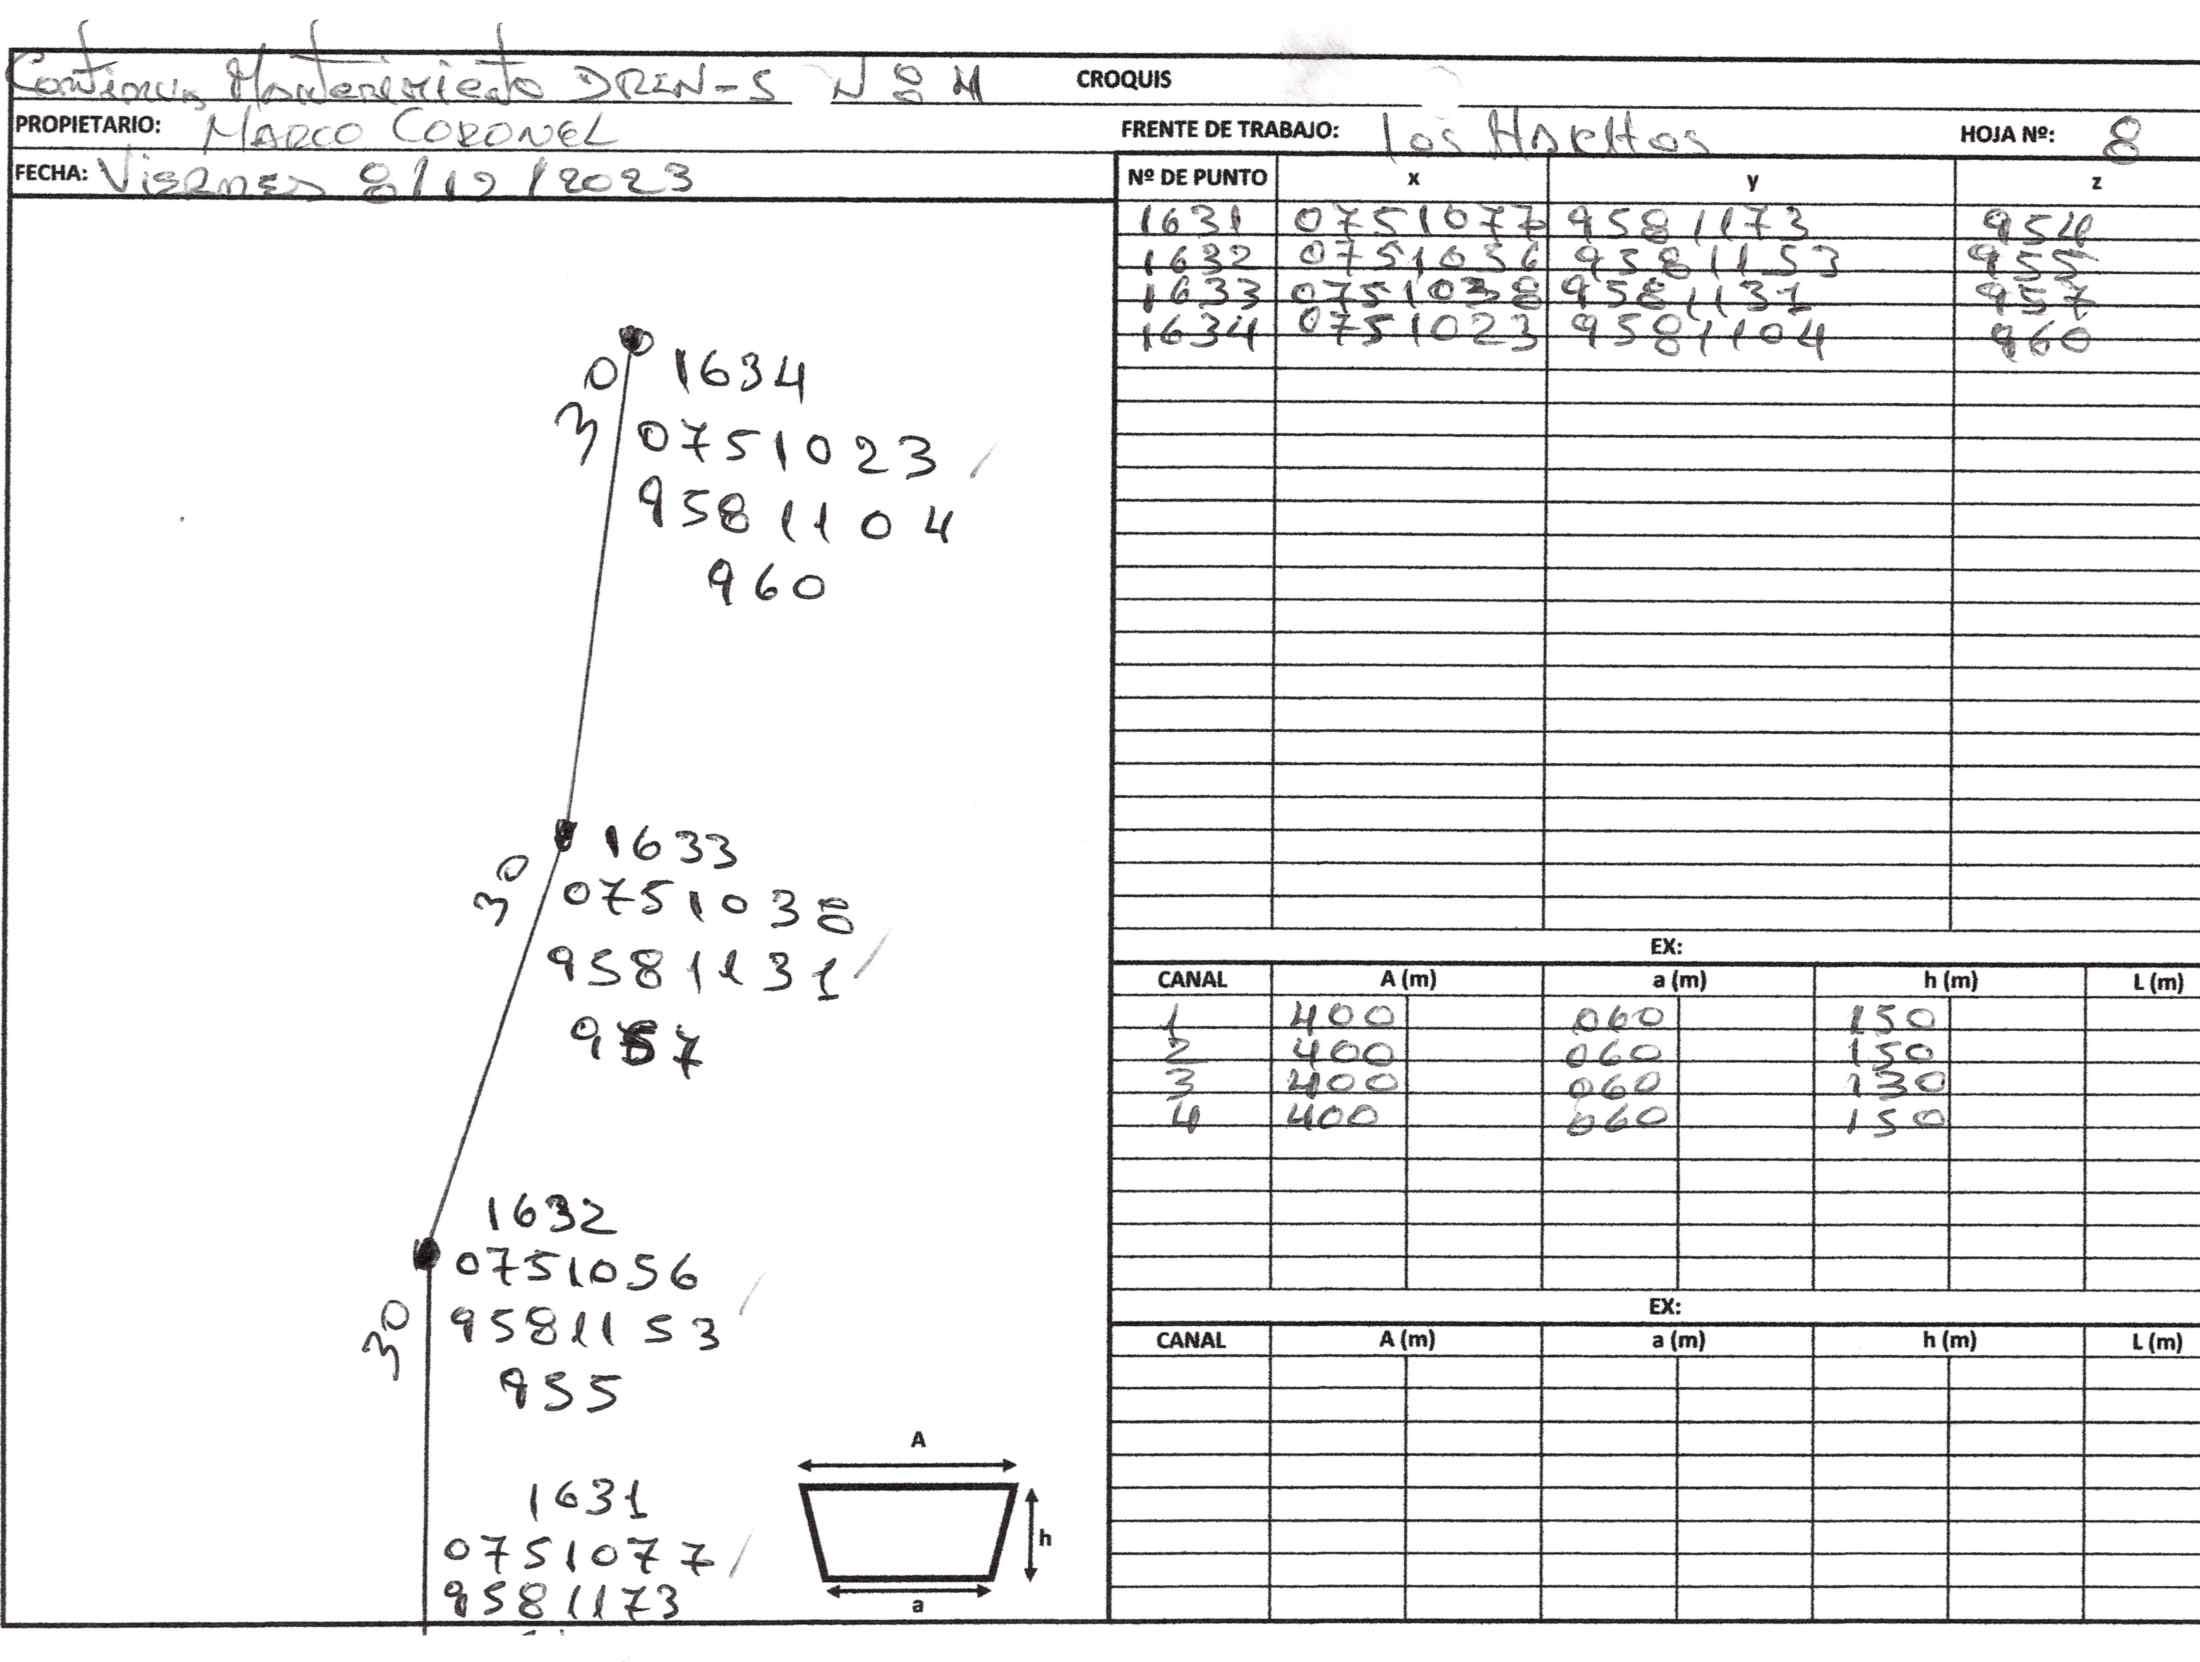 Continua Mantenimiento DREN-S Nº
CROQUIS
PROPIETARIO: MARCO CORONEL
FRENTE DE TRABAJO: Los
HOJA Nº: 8
FECHA: Viernes 8/12/2023
Nº DE PUNTO x y z
1631 0751077 9581173 954
1632 0751056 9581153 955
1633 0751038 9581131 957
1634 0751023 9581104 960
30
1634
0751023
9581104
960
30
1633
0751038
9581131
957
30
1632
0751056
9581153
955
1631
0751077
9581173
A
h
a
EX:
CANAL A (m) a (m) h (m) L (m)
1 400 060 150
2 400 060 150
3 400 060 130
4 400 060 150
EX:
CANAL A (m) a (m) h (m) L (m)